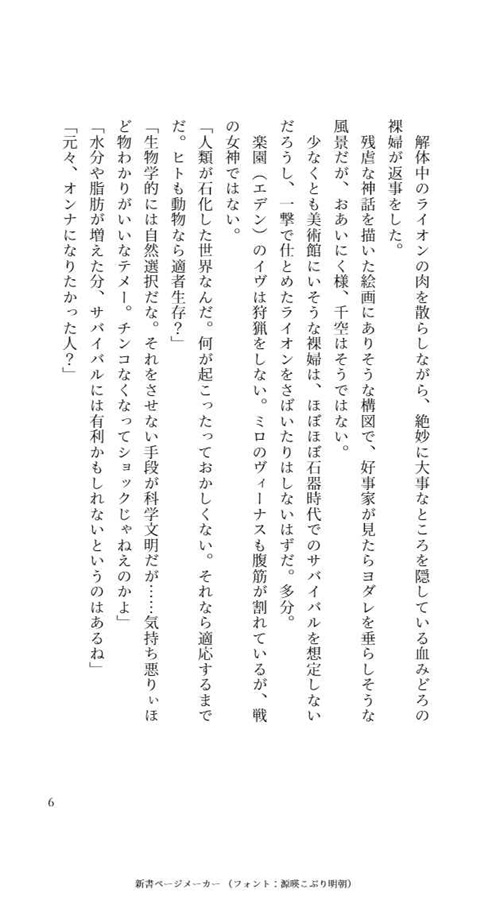 解体中のライオンの肉を散らしながら、絶妙に大事なところを隠している血みどろの
裸婦が返事をした。
　残虐な神話を描いた絵画にありそうな構図で、好事家が見たらヨダレを垂らしそうな
風景だが、おあいにく様、千空はそうではない。
　少なくとも美術館にいそうな裸婦は、ほぼほぼ石器時代でのサバイバルを想定しない
だろうし、一撃で仕とめたライオンをさばいたりはしないはずだ。多分。
　楽園（エデン）のイヴは狩猟をしない。ミロのヴィーナスも腹筋が割れているが、戦
の女神ではない。
「人類が石化した世界なんだ。何が起こったっておかしくない。それなら適応するまで
だ。ヒトも動物なら適者生存？」
「生物学的には自然選択だな。それをさせない手段が科学文明だが……気持ち悪りぃほ
ど物わかりがいいなテメー。チンコなくなってショックじゃねえのかよ」
「水分や脂肪が増えた分、サバイバルには有利かもしれないというのはあるね」
「元々、オンナになりたかった人？」
6
新書ページメーカー（フォント：源暎こぶり明朝）